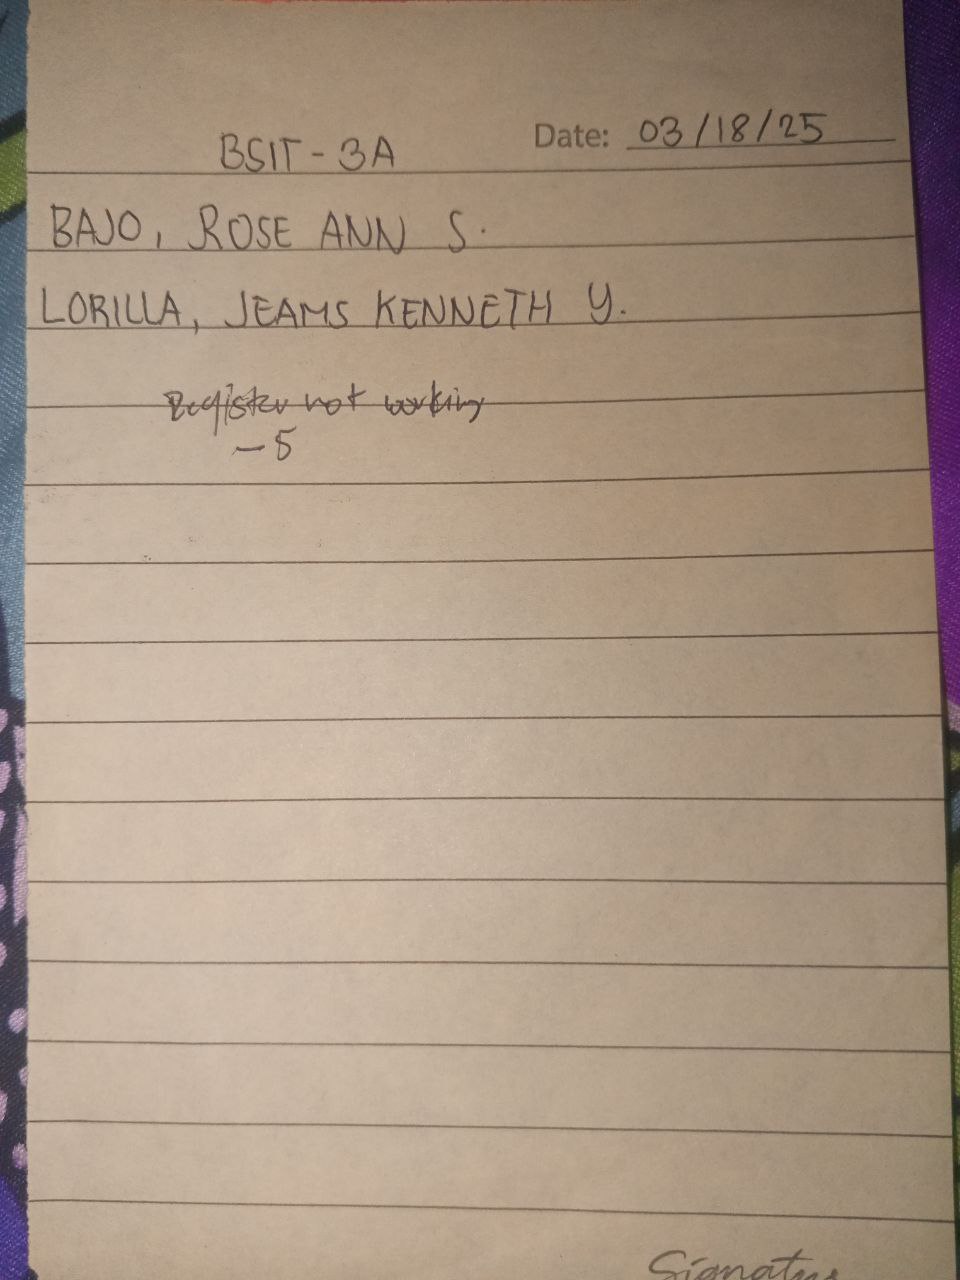 BSIT - 3A
Date: 03/18/25
BAJO, ROSE ANN S.
LORILLA, JEAMS KENNETH Y.
Register not working
-5
Signature